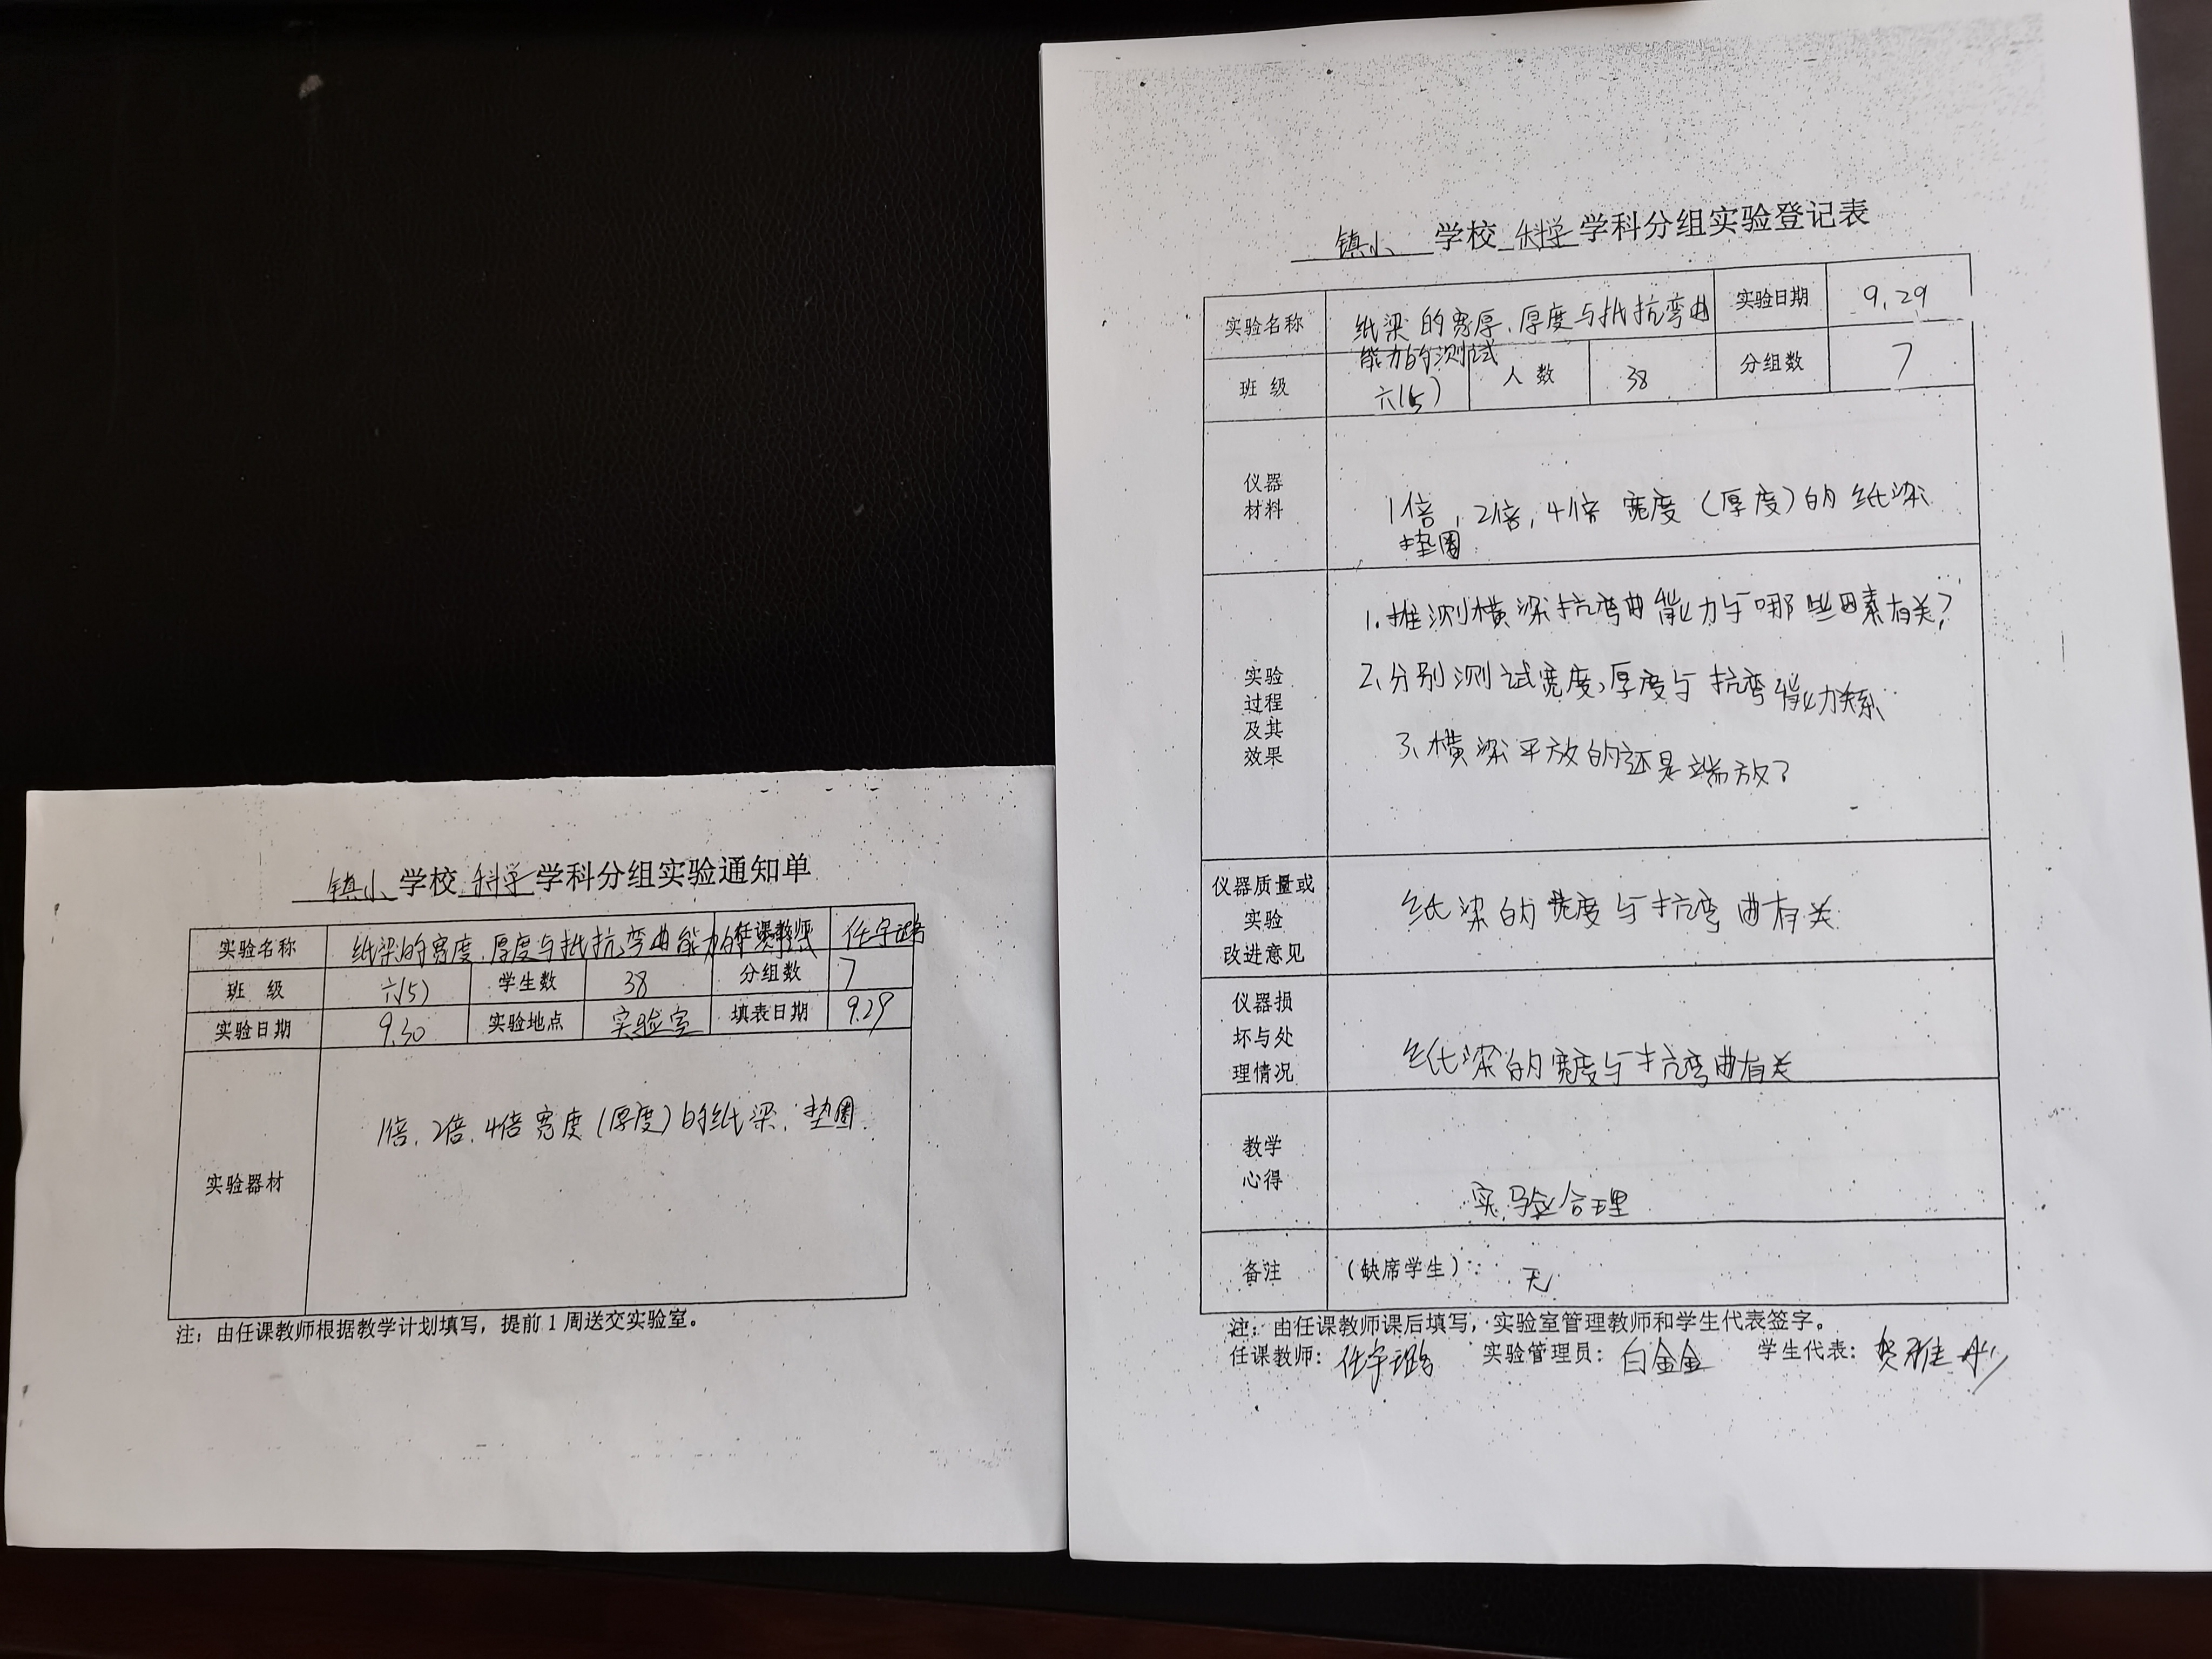 镇小 学校 科学 学科分组实验通知单
实验名称 纸梁的宽度、厚度与抵抗弯曲能力的测试 任课教师 任宇璐
班 级 六(5) 学生数 38 分组数 7
实验日期 9.30 实验地点 实验室 填表日期 9.29
实验器材 1倍、2倍、4倍宽度(厚度)的纸梁、垫圈.
注：由任课教师根据教学计划填写，提前1周送交实验室。
镇小 学校 科学 学科分组实验登记表
实验名称 纸梁的宽厚、厚度与抵抗弯曲 实验日期 9.29
能力的测试
班 级 六(5) 人 数 38 分组数 7
仪器
材料
1倍,2倍,4倍 宽度(厚度)的 纸梁
垫圈
实验
过程
及其
效果
1.推测横梁抗弯曲能力与哪些因素有关?
2、分别测试宽度、厚度与抗弯能力关系
3、横梁平放的还是端放?
仪器质量或
实验
改进意见
纸梁的宽度与抗弯曲有关
仪器损
坏与处
理情况
纸梁的宽度与抗弯曲有关
教学
心得
实验合理
备注 (缺席学生): 无
注：由任课教师课后填写，实验室管理教师和学生代表签字。
任课教师: 任宇璐 实验管理员: 白金金 学生代表: 贺雅